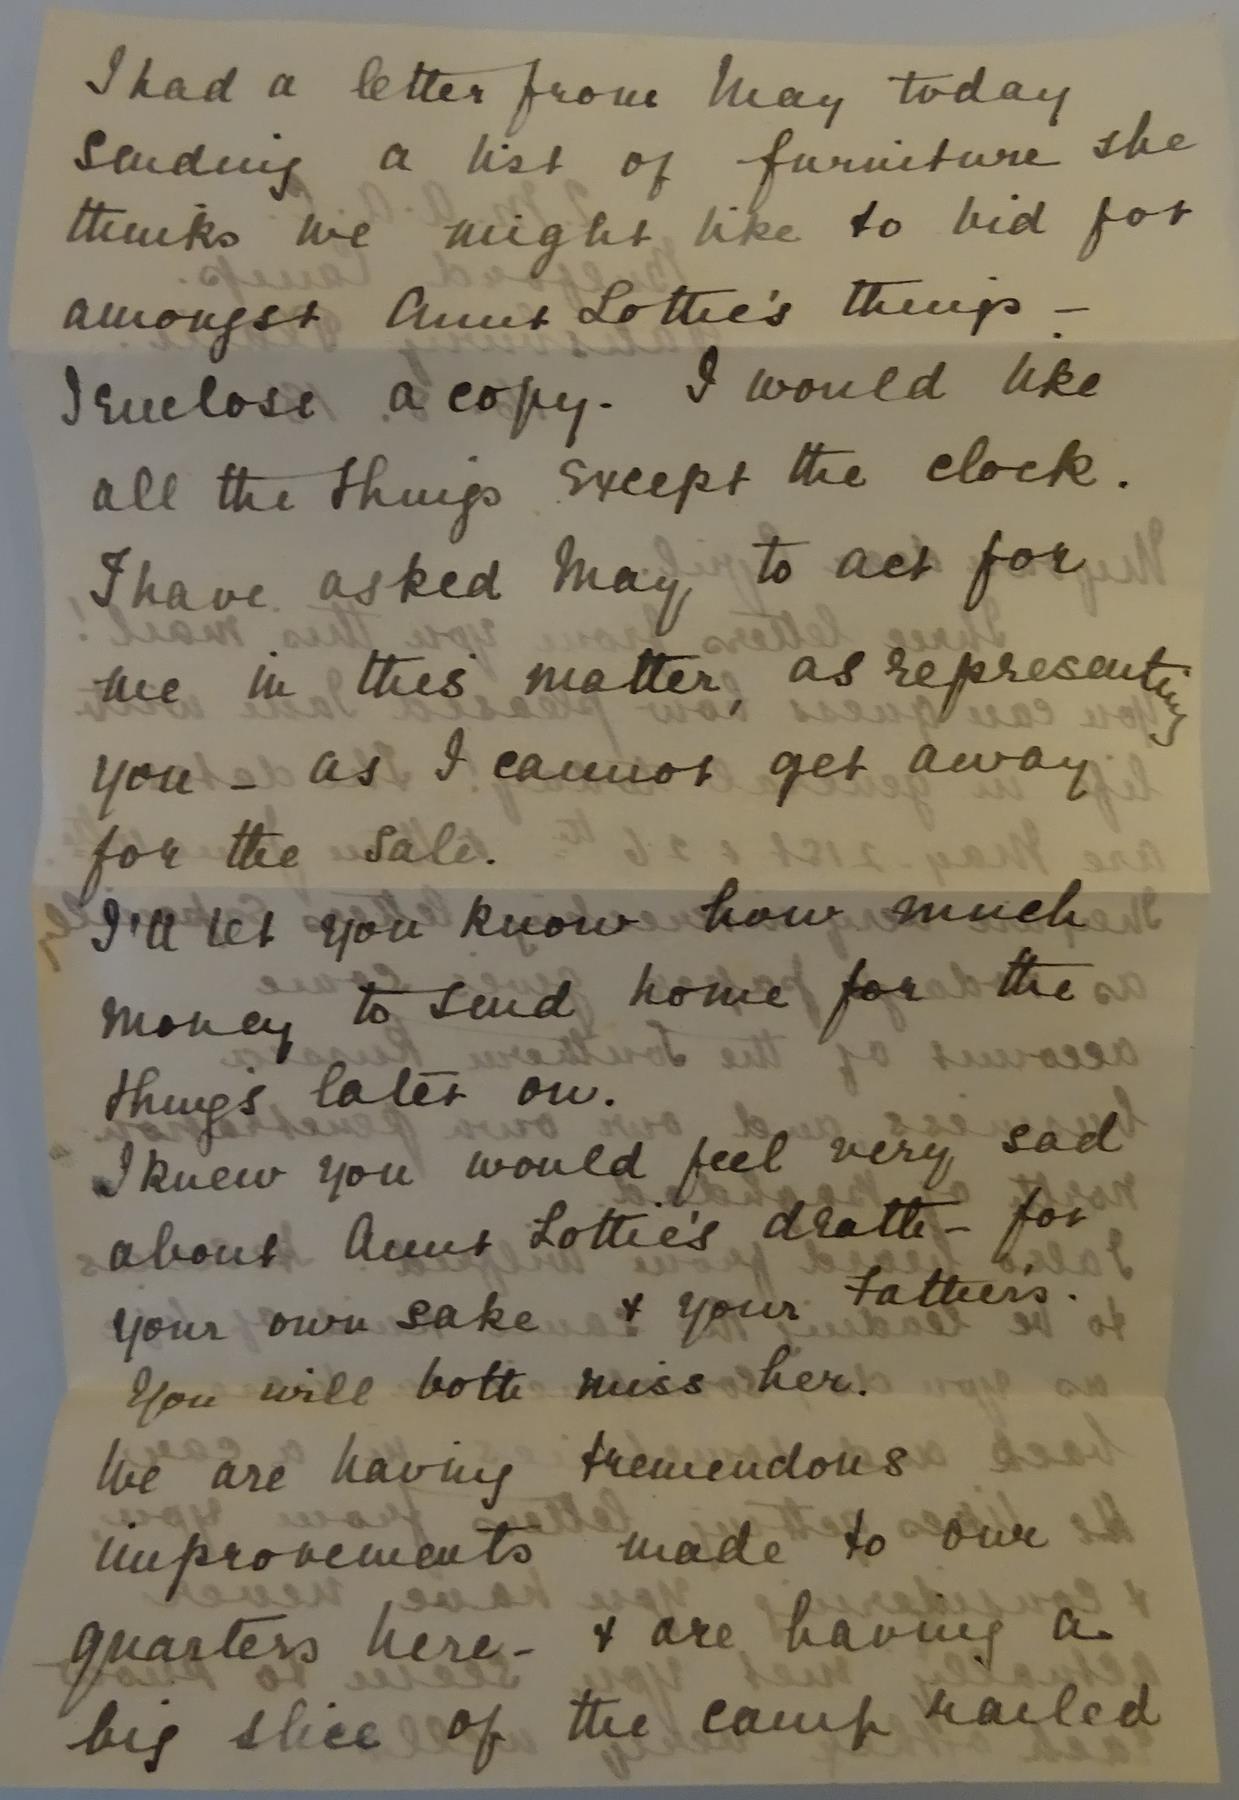 I had a letter from May today
sending a list of furniture she
thinks we might like to bid for
amongst Aunt Lottie's things –
I enclose a copy. I would like
all the things except the clock.
I have asked May, to act for
me in this matter, as representing
you – as I cannot get away
for the sale.
I'll let you know how much
money to send home for the
things later on.
I knew you would feel very sad
about Aunt Lottie's death – for
your own sake & your Father's.
You will both miss her.
We are having tremendous
improvements made to our
quarters here – & are having a
big slice of the camp railed